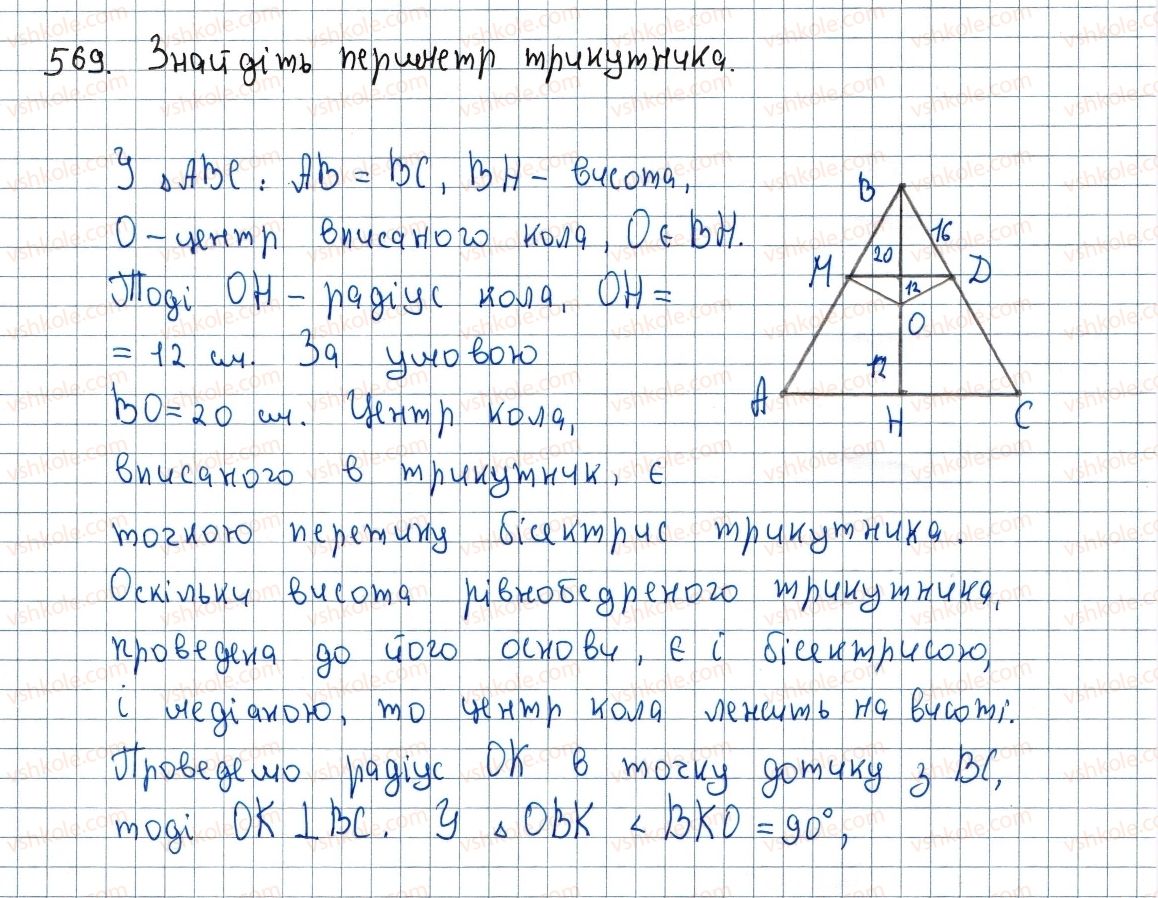 569. Знайдіть периметр трикутника.
У △ABC: AB = BC, BH – висота,
O – центр вписаного кола, O ∈ BH.
Тоді OH – радіус кола, OH =
= 12 см. За умовою
BO = 20 см. Центр кола,
вписаного в трикутник, є
точкою перетину бісектрис трикутника.
Оскільки висота рівнобедреного трикутника,
проведена до його основи, є і бісектрисою,
і медіаною, то центр кола лежить на висоті.
Проведемо радіус OK в точку дотику з BC,
тоді OK ⊥ BC. У △OBK ∠BKO = 90°,
B
16
20
M
D
12
O
12
A
H
C